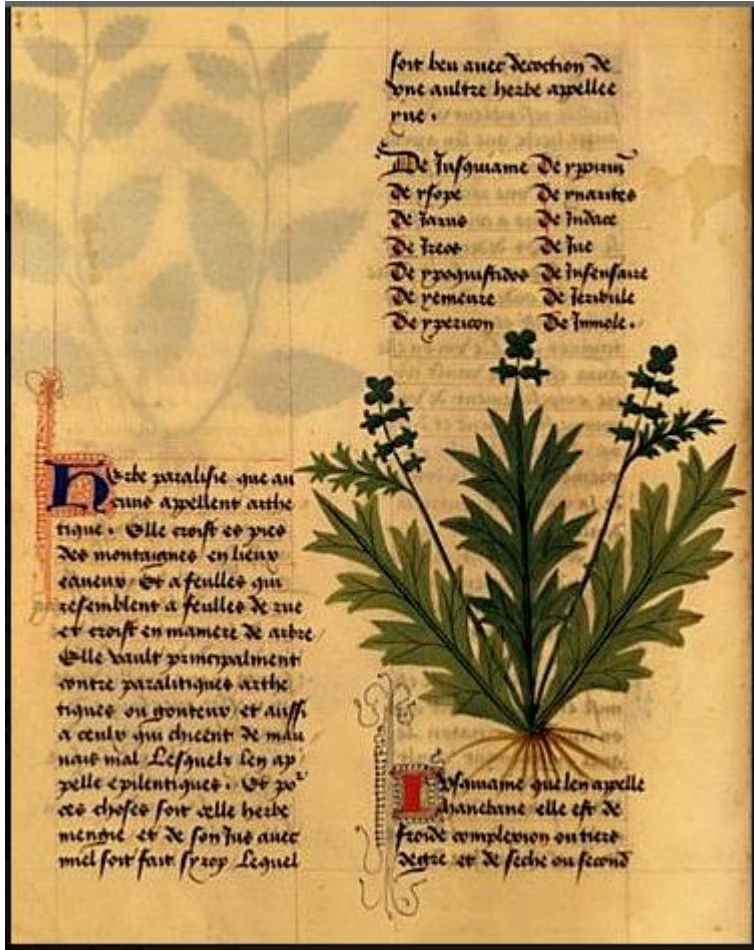 Herbe paralisie que au
cuns appellent arthe
tique. Elle croist es pres
des montaignes en lieux
eaueux. Et a feulles qui
resemblent a feulles de rue
et croist en maniere de arbre
Elle vault principalment
contre paralitiques arthe
tiques ou gouteux et aussi
a ceulx qui chieent de mau
uais mal Lesquelz len ap
pelle epilentiques. Et po
ces choses soit celle herbe
mengie et de son Jus auec
miel soit fait syrop Lequel
soit beu auec decoction de
vne aultre herbe appellee
rue.
De Jusquiame De
De ysope De ynarites
De Jarus De Jndace
De Jreos De Jue
De ypoquistidos De Jnsensaire
De yemeure De Jeribule
De ypericon De Jnmole.
Jusquiame que len appelle
hanebane elle est de
froide complexion ou tiers
degre et de seche ou second